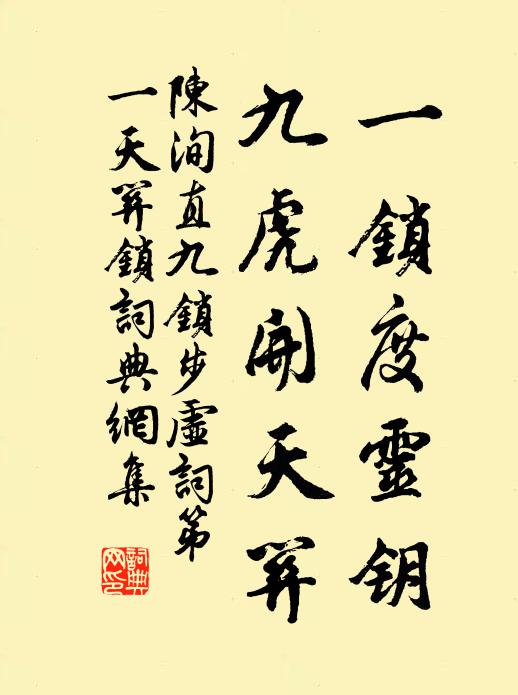 一鎖度靈鈅
九虎開天关
陳洵直九鎖步虛詞第
一天关鎖詞典網集
詞典
网印